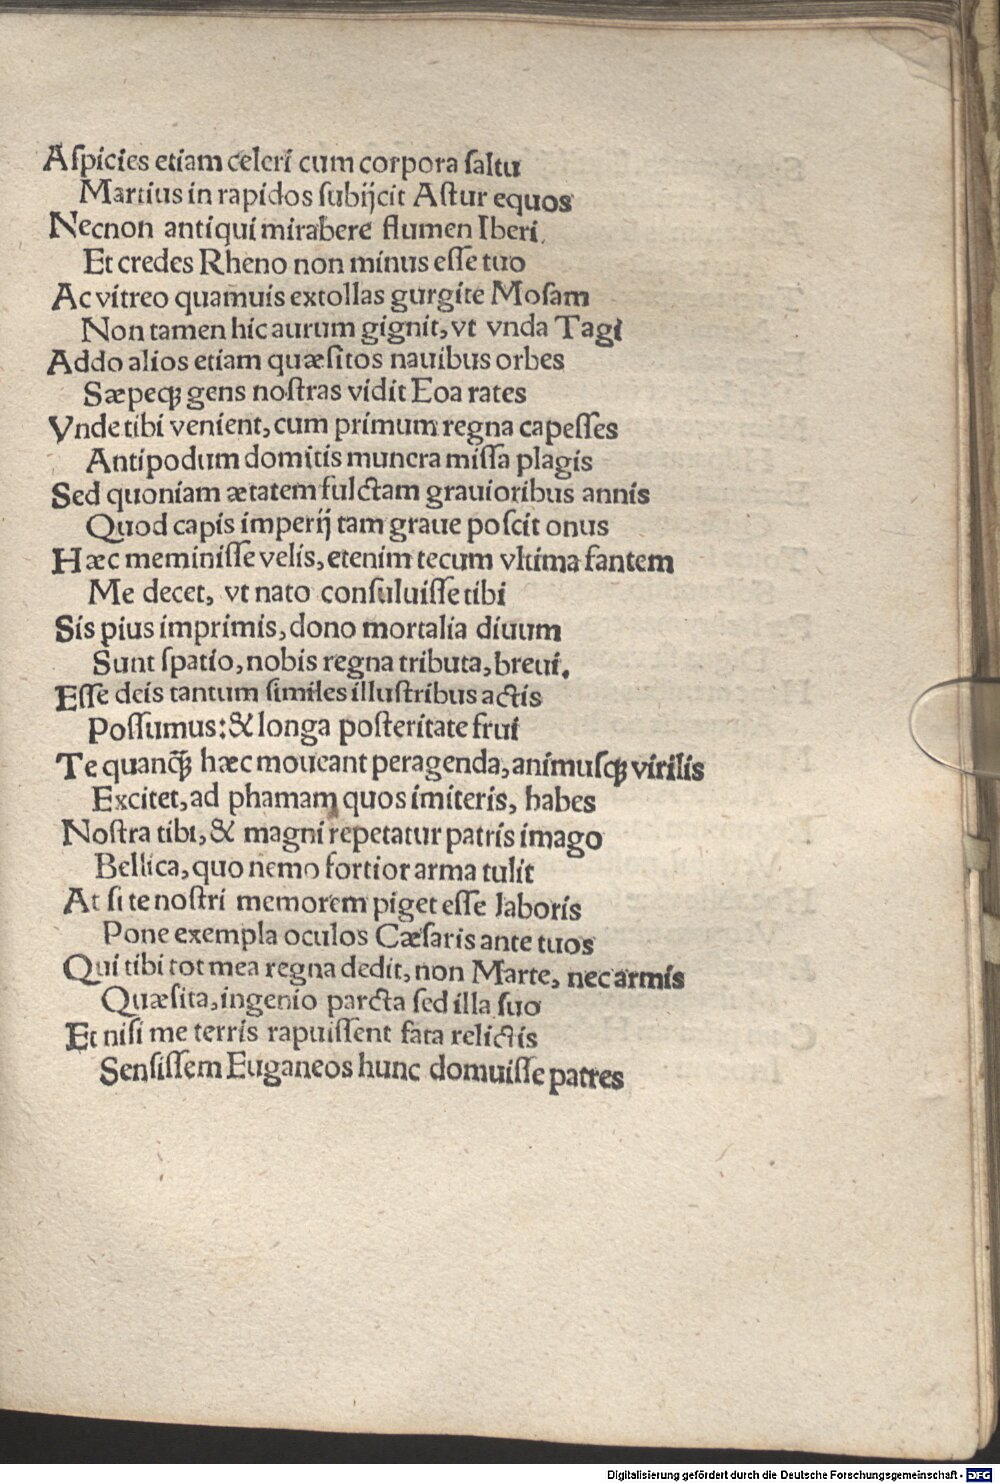 Aſpicies etiam celeri cum corpora ſaltu
Martius in rapidos ſubijcit Aſtur equos
Necnon antiqui mirabere flumen Iberi.
Et credes Rheno non minus eſſe tuo
Ac vitreo quamuis extollas gurgite Moſam
Non tamen hic aurum gignit, vt vnda Tagi
Addo alios etiam quæſitos nauibus orbes
Sæpeqꝫ gens noſtras vidit Eoa rates
Vnde tibi venient, cum primum regna capeſſes
Antipodum domitis munera miſſa plagis
Sed quoniam ætatem fulctam grauioribus annis
Quod capis imperij tam graue poſcit onus
Hæc meminiſſe velis, etenim tecum vltima fantem
Me decet, vt nato conſuluiſſe tibi
Sis pius imprimis, dono mortalia diuum
Sunt ſpatio, nobis regna tributa, breui.
Eſſe deis tantum ſimiles illuſtribus actis
Poſſumus: & longa poſteritate frui
Te quanq̃ꝫ hæc moueant peragenda, animuſqꝫ virilis
Excitet, ad phamam quos imiteris, habes
Noſtra tibi, & magni repetatur patris imago
Bellica, quo nemo fortior arma tulit
At ſi te noſtri memorem piget eſſe laboris
Pone exempla oculos Cæſaris ante tuos
Qui tibi tot mea regna dedit, non Marte, nec armis
Quæſita, ingenio parcta sed illa ſuo
Et niſi me terris rapuiſſent fata relictis
Senſiſſem Euganeos hunc domuiſſe patres
Digitalisierung gefördert durch die Deutsche Forschungsgemeinschaft - DFG